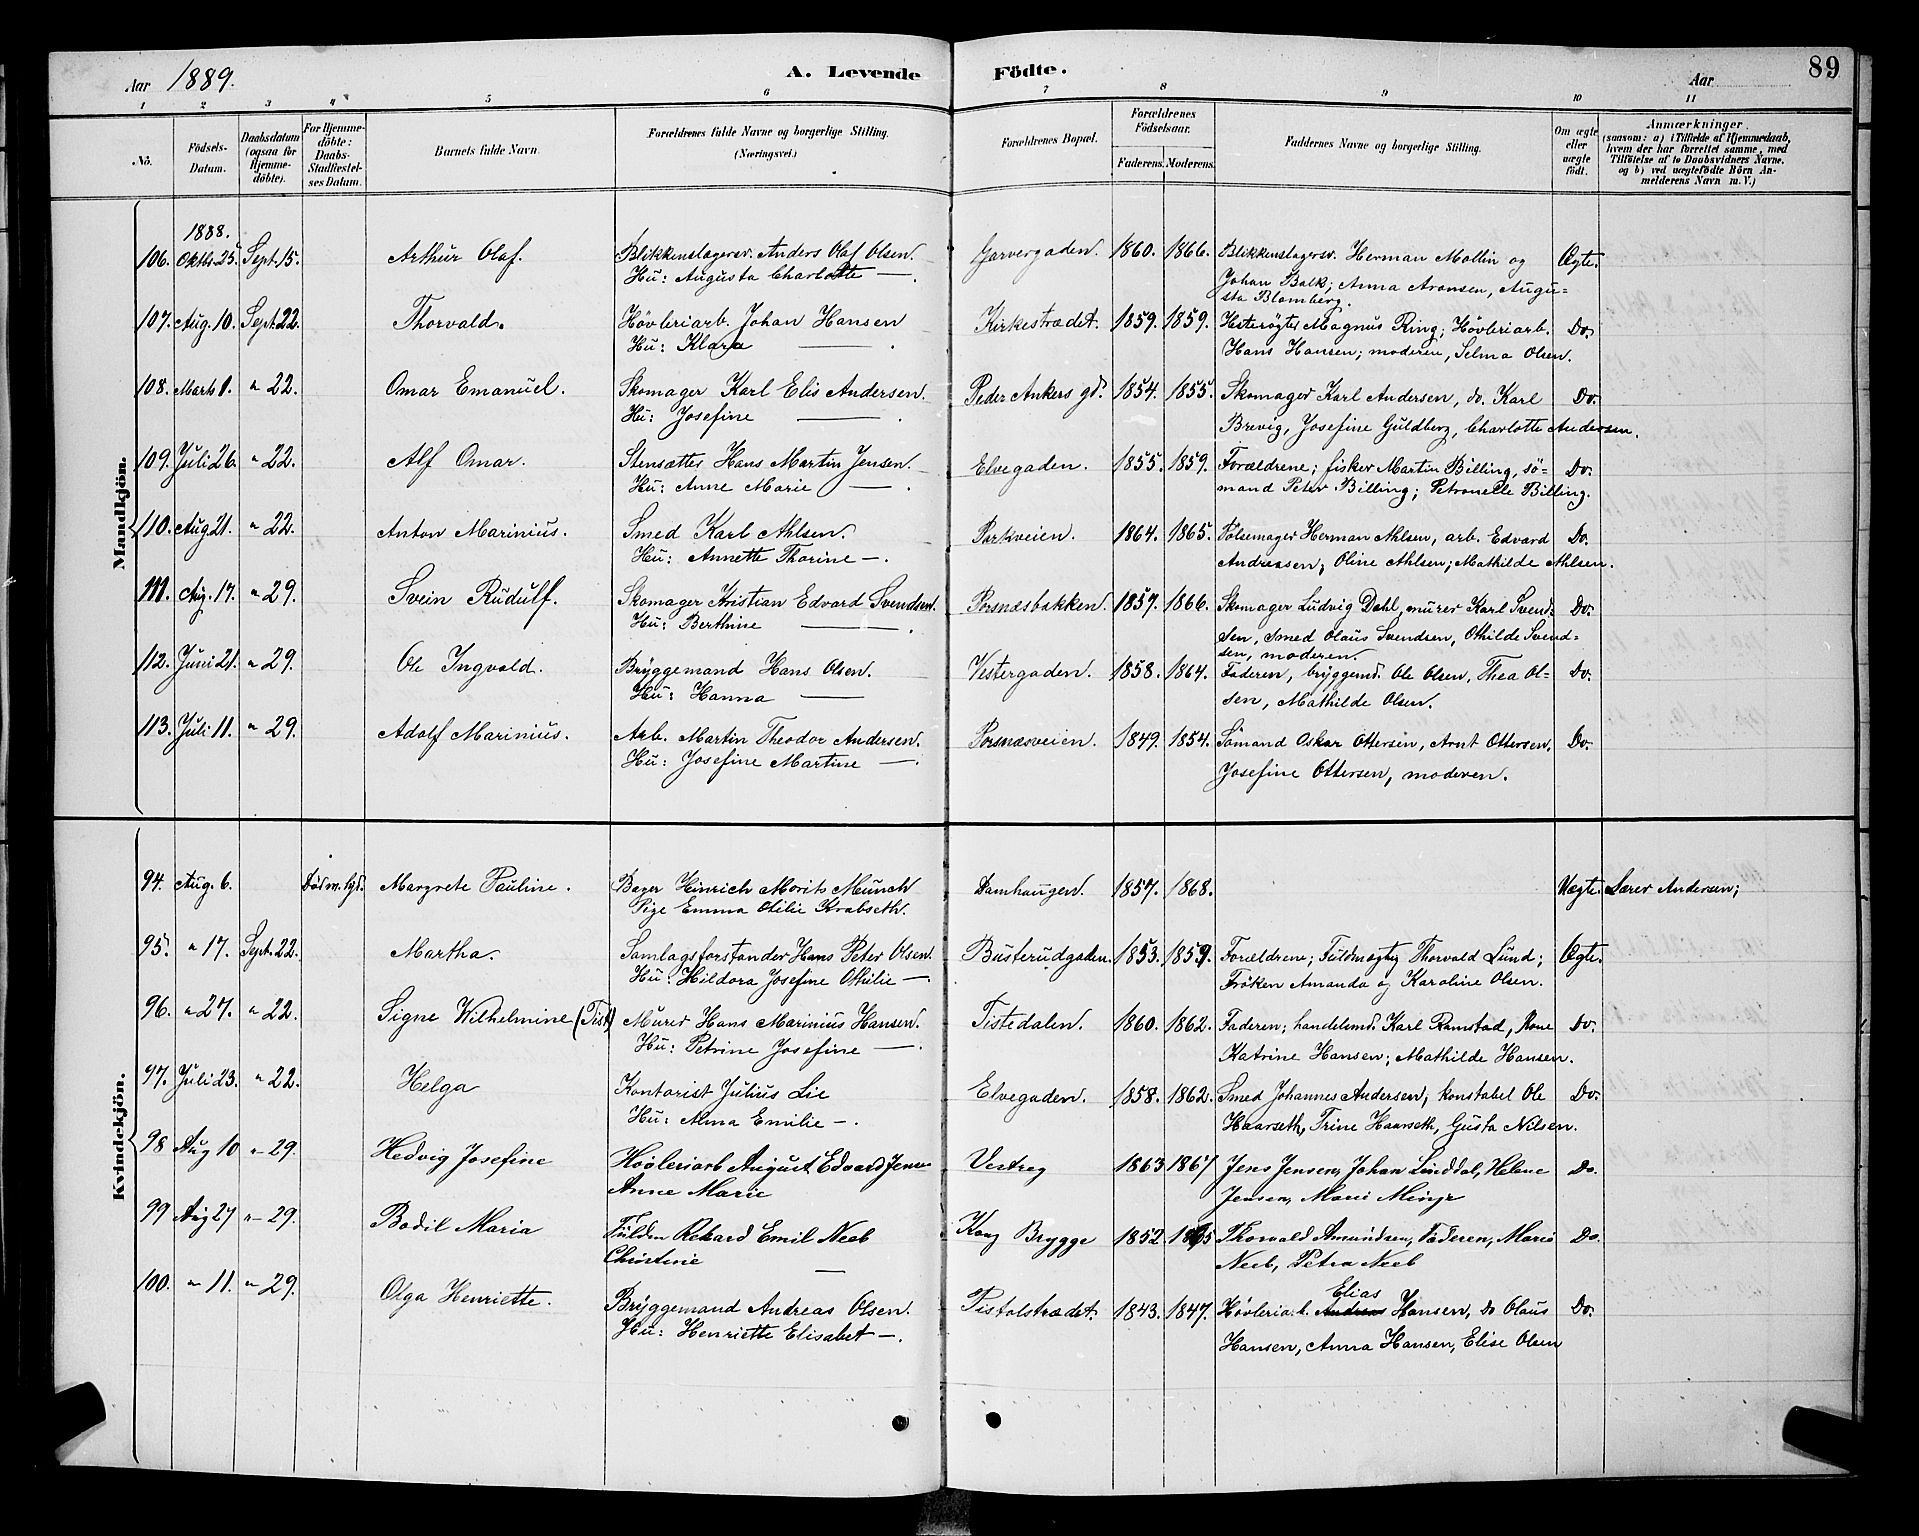 Aar 1889. A. Levende Födte. Aar 89
1 2 3 4 5 6 7 8 9 10 11
No. Födsels-Datum. Daabsdatum (ogsaa for Hjemmedöbte). For Hjemmedöbte: Daabs-Stadfæstelses Datum. Barnets fulde Navn. Forældrenes fulde Navne og borgerlige Stilling. (Næringsvei.) Forældrenes Bopæl. Forældrenes Födselsaar. Faderens. Moderens. Faddernes Navne og borgerlige Stilling. Om ægte eller uægte födt. Anmærkninger. (saasom: a) i Tilfælde af Hjemmedaab, hvem der har forrettet samme, med Tilföielse af to Daabsvidners Navne. og b) ved uægtefödte Börn Anmelderens Navn m. V.)
Mandkjön.
1888.
106. Oktbr 25. Sept. 15. Arthur Olaf. Blikkenslagersv. Anders Olaf Olsen. Garvergaden. 1860. 1866. Blikkenslagersv. Herman Mollin og Ægte.
Hu: Augusta Charlotte —. Johan Balk; Anna Aronsen, Augu=
sta Blomberg.
107. Aug. 10. Sept. 22. Thorvald. Høvleriarb. Johan Hansen Kirkestrædet. 1859. 1859. Hesterøgter Magnus Ring; Høvleriarb. Do.
Hu: Klara —. Hans Hansen; moderen, Selma Olsen.
108. Marts 1. " 22. Omar Emanuel. Skomager Karl Elis Andersen. Peder Ankers gd. 1854. 1855. Skomager Karl Andersen, do. Karl Do.
Hu: Josefine — Brevig, Josefine Guldberg, Charlotte Andersen.
109. Juli 26. " 22. Alf Omar. Stensætter Hans Martin Jensen. Elvegaden. 1855. 1859. Forældrene; fisker Martin Billing, sö= Do.
Hu: Anne Marie —. mand Peter Billing; Petronelle Billing.
110. Aug 21. " 22. Anton Marinius. Smed Karl Ahlsen. Parkveien. 1864. 1865. Pölsemager Herman Ahlsen, arb. Edvard Do.
Hu: Annette Thorine —. Andreasen; Oline Ahlsen; Mathilde Ahlsen.
111. Aug. 17. " 29. Svein Rudulf. Skomager Kristian Edvard Svendsen. Porsnæsbakken. 1857. 1866. Skomager Ludvig Dahl, murer Karl Svend= Do.
Hu: Berthine —. sen, smed Olaus Svendsen, Othilde Svend=
sen, moderen.
112. Juni 21. " 29. Ole Ingvald. Bryggemand Hans Olsen. Vestergaden. 1858. 1864. Faderen, bryggemd. Ole Olsen, Thea Ol= Do.
Hu: Hanna — sen, Mathilde Olsen.
113. Juli 11. " 29. Adolf Marinius. Arb. Martin Theodor Andersen. Porsnæsveien. 1849. 1854. Sömand Oskar Ottersen, Arnt Ottersen, Do.
Hu: Josefine Martine —. Josefine Ottersen, moderen.
Kvindekjön.
94. Aug. 6. Död m. Margrete Pauline. Bager Hinrich Morits Münch Damhaugen. 1857. 1868. Uægte. Lærer Andersen;
Pige Emma Otilie Krabseth.
95. " 17. Sept. 22. Martha. Samlagsforstander Hans Peter Olsen. Busterudgaden. 1853. 1859. Forældrene; Fuldmægtig Thorvald Lund; Ægte.
Hu: Hildora Josefine Othilie —. Fröken Amanda og Karoline Olsen.
96. " 27. " 22. Signe Wilhelmine (Tist) Murer Hans Marinius Hansen. Tistedalen. 1860. 1862. Faderen; handelsmd. Karl Ramstad, Kone Do.
Hu: Petrine Josefine —. Katrine Hansen; Mathilde Hansen.
97. Juli 23. " 22. Helga Kontorist Julius Lie Elvegaden. 1858. 1862. Smed Johannes Andersen; konstabel Ole Do.
Hu: Alma Emilie —. Haarseth, Trine Haarseth, Gusta Nilsen.
98 Aug 10 "- 29. Hedvig Josefine Høvleriarb August Edvard Jensen Vestreg 1863 1867 Jens Jensen, Johan Linddal, Helene Do.
Anne Marie Jensen, Marie
99 Aug 27 "- 29. Bodil Maria Rekard Emil Neeb Kong Brygge 1852 Thorvald Amundsen, Faderen, Marie Do.
Christine — Neeb, Petra Neeb
100. " 11. " 29. Olga Henriette. Bryggemand Andreas Olsen. Pistolstrædet. 1843. 1847. Høvleria.b. Elias Hansen, do Olaus Do.
Hu: Henriette Elisabet —. Hansen, Anna Hansen, Elise Olsen